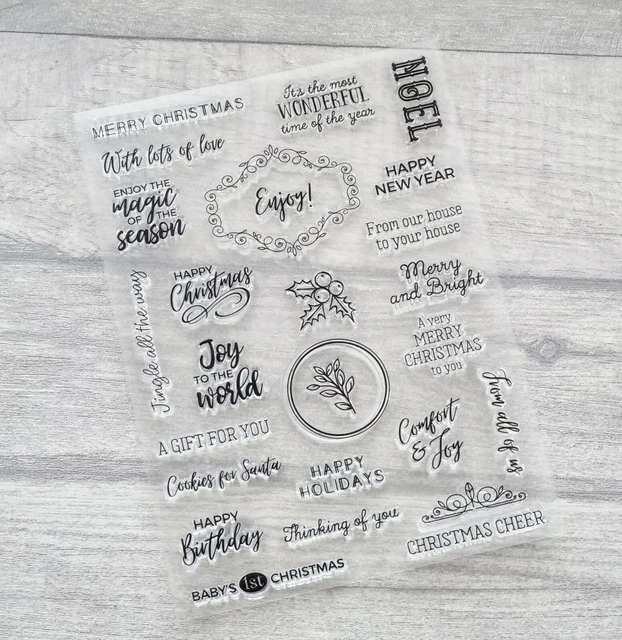 MERRY CHRISTMAS
It's the most
WONDERFUL
time of the year
NOEL
With lots of love
ENJOY THE
magic
OF THE
season
Enjoy!
HAPPY
NEW YEAR
From our house
to your house
Jingle all the way
HAPPY
Christmas
Merry
and Bright
Joy
TO THE
world
A very
MERRY
CHRISTMAS
to you
A GIFT FOR YOU
Comfort
& Joy
from all of us
Cookies for Santa
HAPPY
HOLIDAYS
HAPPY
Birthday
Thinking of you
CHRISTMAS CHEER
BABY'S 1st CHRISTMAS